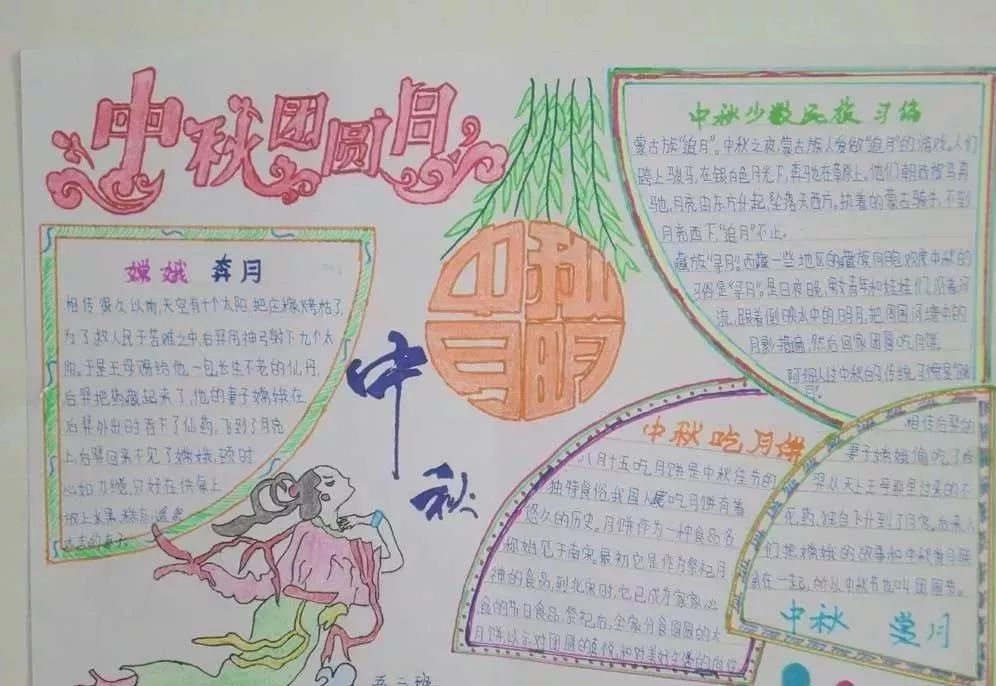 中秋团圆月
嫦娥 奔月
相传很久以前,天空有十个太阳,把庄稼烤枯了,
为了救人民于苦难之中,后羿用神弓射下九个太
阳。于是王母赐给他一包长生不老的仙丹,
后羿把药藏起来了,他的妻子嫦娥在
后羿外出时吞下了仙药,飞到了月亮
上,后羿回来不见了嫦娥,顿时
心如刀
放上水果、糕点
中秋
中秋
明月
中秋少数民族习俗
蒙古族“追月”。中秋之夜,蒙古族人爱做“追月”的游戏。人们
跨上骏马,在银白色月光下,奔驰在草原上。他们朝西放马奔
驰,月亮由东方升起,坠落天西方。执着的蒙古骑手,不到
月亮西下,“追月”不止。
藏族“寻月”。西藏一些地区的藏族同胞欢度中秋的
习俗是“寻月”。是日夜晚,男女青年和娃娃们,沿着河
流,跟着倒映水中的明月,把周围河塘中的
月影捕遍,然后回家团圆吃月饼。
阿细人过中秋的传统
中秋吃月饼
八月十五吃月饼是中秋佳节的
独特食俗,我国人民吃月饼有着
悠久的历史。月饼作为一种食品名
称始见于南宋。最初它是作为祭祀月
神的食品,到北宋时,它已成为家家必
食的节日食品。祭祀后,全家分食圆圆的大
月饼,以示对团圆的喜悦,和对美好生活的
相传后羿的
妻子嫦娥偷吃了后
羿从天上王母那里讨来的不
死药,独自飞升到了月宫。后来人
们把嫦娥的故事和中秋赏月联
系在一起,所以中秋节也叫团圆节。
中秋 赏月
五二班